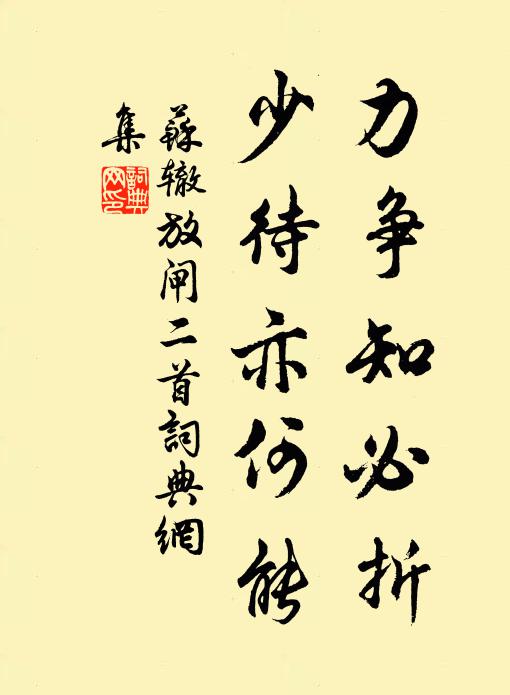 力争知必折
少待亦何能
蘇辙放闸二首詞典網
集
詞典网印